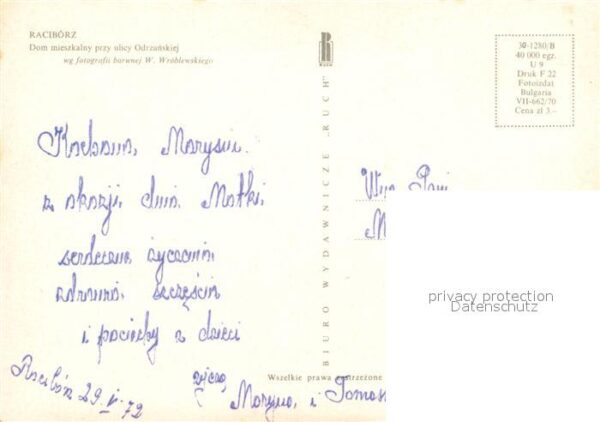 RACIBÓRZ
Dom mieszkalny przy ulicy Odrzańskiej
wg fotografii barwnej W. Wróblewskiego
BIURO WYDAWNICZE „RUCH"
30-1280/B
40 000 egz.
U 9
Druk F 22
Fotoizdat
Bulgaria
VII-662/70
Cena zł 3.—
Kochana Marysiu
z okazji dnia Matki
serdeczne życzenia
zdrowia szczęścia
i pociechy z dzieci
życzą
Maryna i Tomas
Racibórz 29 V 72
W Pani
M
Wszelkie prawa zastrzeżone
privacy protection
Datenschutz